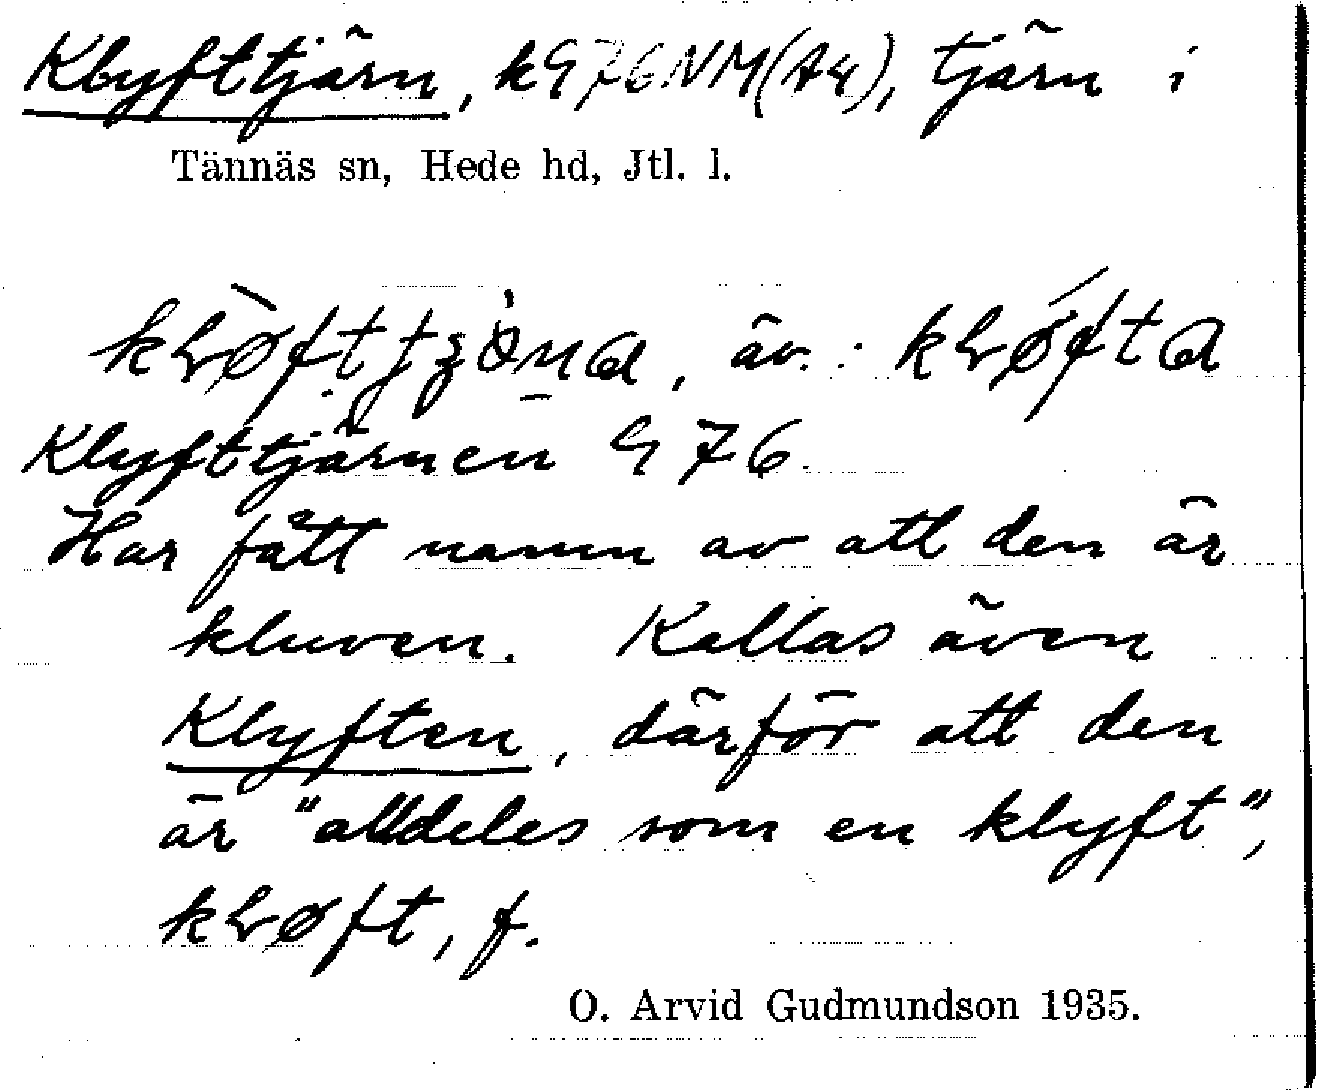 Klyfttjärn, k 976 NM (A4), tjärn i
Tännäs sn, Hede hd, Jtl. l.
äv.:
Klyfttjärnen 976.
Har fått namn av att den är
kluven. Kallas även
Klyften, därför att den
är "alldeles som en klyft",
f.
O. Arvid Gudmundson 1935.